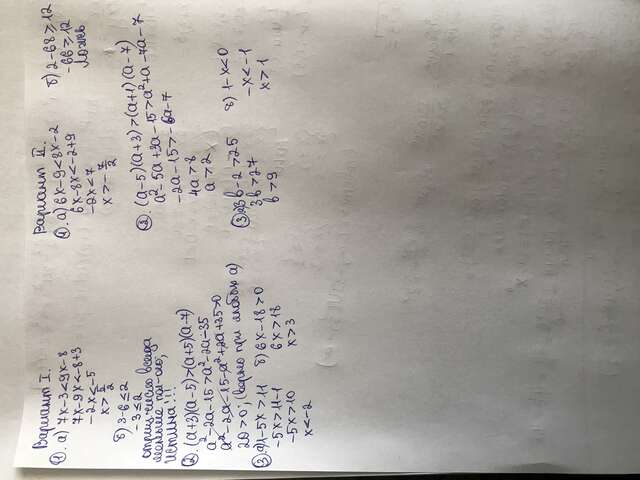 Вариант I.
① а) 7x-3<9x-8
7x-9x<-8+3
-2x<-5
x>5/2
б) 3-6≤2
-3≤2
отриц. число всегда
меньше пол-го,
истина!!!
② (а+3)(а-5)>(а+5)(а-7)
а²-2а-15>а²-2а-35
а²-2а-15-а²+2а+35>0
20>0; (верно при любом а)
③ а) 1-5x>11
-5x>11-1
-5x>10
x<-2
б) 6x-18>0
6x>18
x>3
Вариант II.
① а) 6x-9<8x-2
6x-8x<-2+9
-2x<7
x>-7/2
б) 2-68≥12
-66≥12
ложь
② (а-5)(а+3)>(а+1)(а-7)
а²-5а+3а-15>а²+а-7а-7
-2а-15>-6а-7
4а>8
а>2
③ а) 3b-2>25
3b>27
b>9
б) 1-x<0
-x<-1
x>1